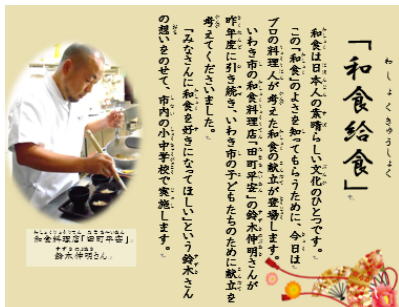 「和食給食」
わしょくきゅうしょく
和食は日本人の素晴らしい文化のひとつです。
この「和食」のよさを知ってもらうために、今日は
プロの料理人が考えた和食の献立が登場します。
いわき市の和食料理店「田町平安」の鈴木伸明さんが
昨年度に引き続き、いわき市の子どもたちのために献立を
考えてくださいました。
「みなさんに和食を好きになってほしい」という鈴木さん
の想いをのせて、市内の小中学校で実施します。
和食料理店「田町平安」
鈴木伸明さん